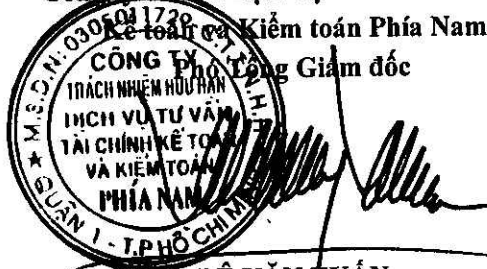 Kế toán và Kiểm toán Phía Nam
Phó Tổng Giám đốc
M.S.D.N: 0305011729 - C.T.T.N.H.H
CÔNG TY
TRÁCH NHIỆM HỮU HẠN
DỊCH VỤ TƯ VẤN
TÀI CHÍNH KẾ TOÁN
VÀ KIỂM TOÁN
PHÍA NAM
QUẬN 1 - T.P HỒ CHÍ MINH